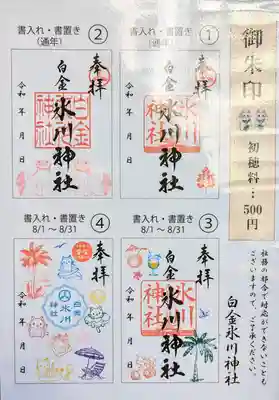 御朱印
初穂料…500円
社務の都合で対応ができないことも
ございますので、ご了承ください。
白金氷川神社
書入れ・書置き
(通年)
①
奉拝
白金
氷川神社
氷川神社
令和 年 月 日
書入れ・書置き
(通年)
②
奉拝
白金
氷川神社
白金神社
令和 年 月 日
書入れ・書置き
8/1～8/31
③
奉拝
白金
氷川神社
氷川神社
令和 年 月 日
書入れ・書置き
8/1～8/31
④
奉拝
白金
氷川
神社
令和 年 月 日